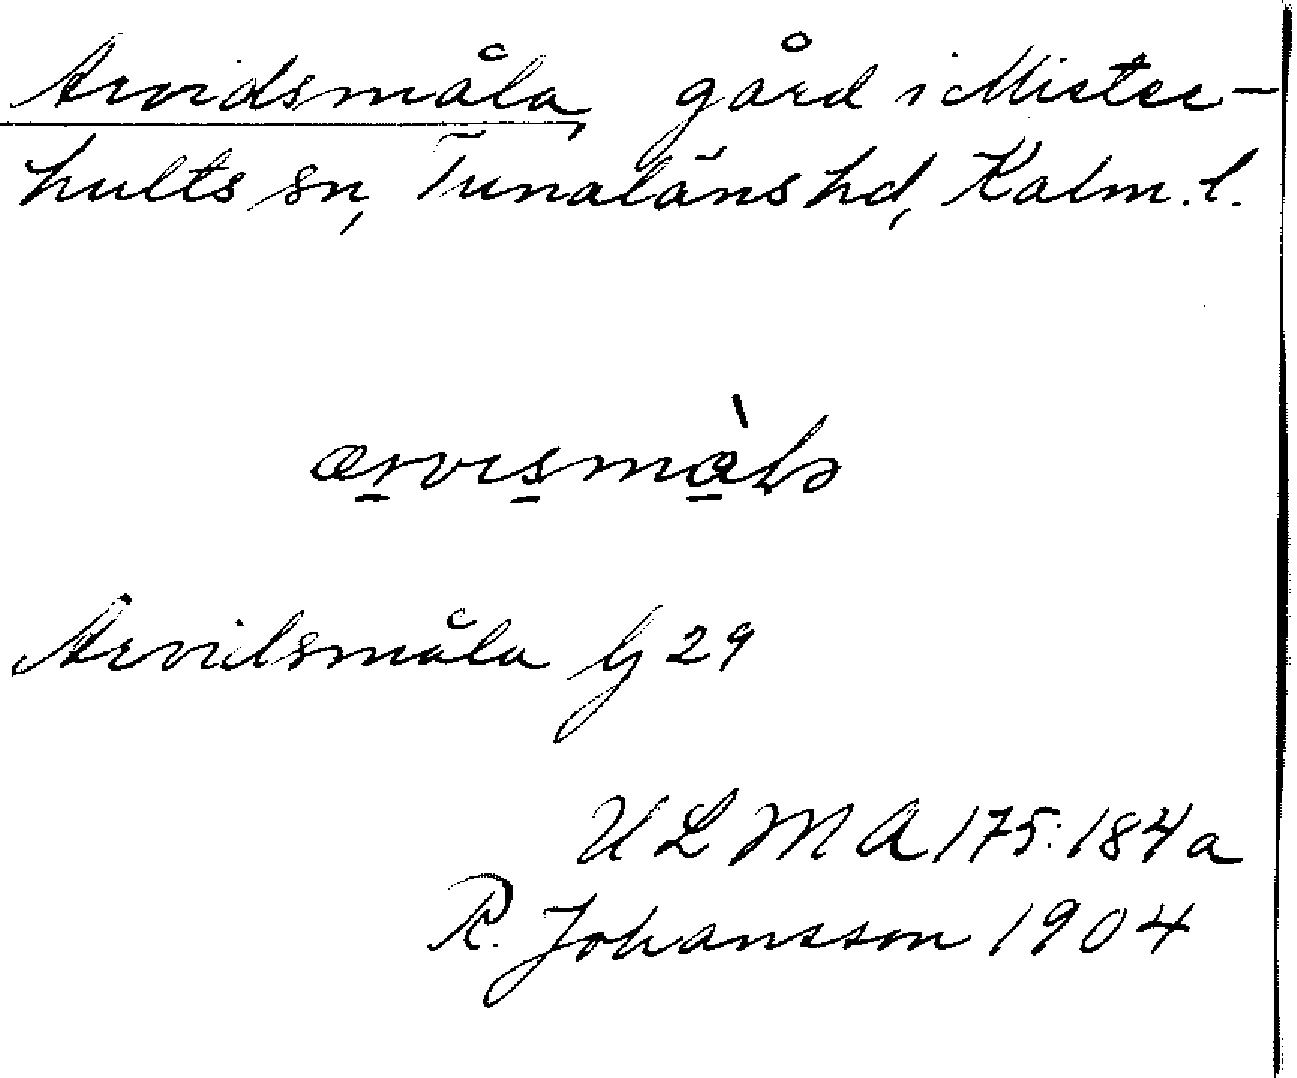 Arvidsmåla, gård i Mister-
hults sn, Tunaläns hd, Kalm. l.
Arvidsmåla G 29
ULMA 175:184a
R. Johansson 1904